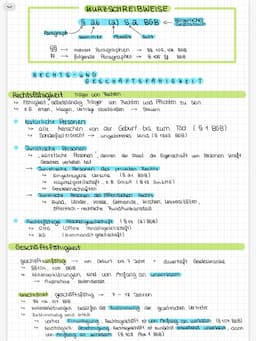 KURZSCHREIBWEISE
§ 26 (2) S. 2 BGB ← Bürgerliches Gesetzbuch
Paragraph
Nummer Absatz Satz
§§ → mehrere Paragraphen → §§ 104, 106 BGB
ff → folgende Paragraphen → § 104 ff BGB
RECHTS- UND
GESCHÄFTSFÄHIGKEIT
Rechtsfähigkeit Träger von Rechten
→ Fähigkeit, selbstständig Träger von Rechten und Pflichten zu sein
→ z.B. erben, klagen, Vertrag abschließen → Steuern
Natürliche Personen
→ alle Menschen von der Geburt bis zum Tod (§ 1 BGB)
→ ungeborenes Kind (§ 1923 BGB)
Juristische Personen
→ "künstliche" Personen, denen der Staat die Eigenschaft von Personen kraft
Gesetzes verliehen hat
Juristische Personen des privaten Rechts
→ eingetragene Vereine (§ 21 BGB)
→ Kapitalgesellschaft, z.B. GmbH
→ Genossenschaften
Juristische Personen des öffentlichen Rechts
→ Bund, Länder, Kreise, Gemeinde, Kirchen, Universitäten,
öffentlich-rechtliche Rundfunkanstalt
Rechtsfähige Personengesellschaft (§ 14 (2) BGB)
→ OHG (offene Handelsgesellschaft)
→ KG (Kommanditgesellschaft)
Geschäftsfähigkeit
geschäftsunfähig → von Geburt bis 7 Jahre + dauerhaft Geisteskranke
→ §§ 104, 105 BGB
→ Willenserklärungen sind von Anfang an unwirksam
→ Ausnahme: Botendienst
beschränkt geschäftsfähig → 7 - 18 Jahren
→ §§ 106, 107 BGB
→ Willenserklärungen bedürfen der Zustimmung der gesetzlichen Vertreter
→ Zustimmung wird erteilt
→ vorher: Einwilligung, Rechtsgeschäft ist von Anfang an wirksam
→ nachträglich: Genehmigung, Rechtsgeschäft ist zunächst schwebend unwirksam, dann
von Anfang an wirksam